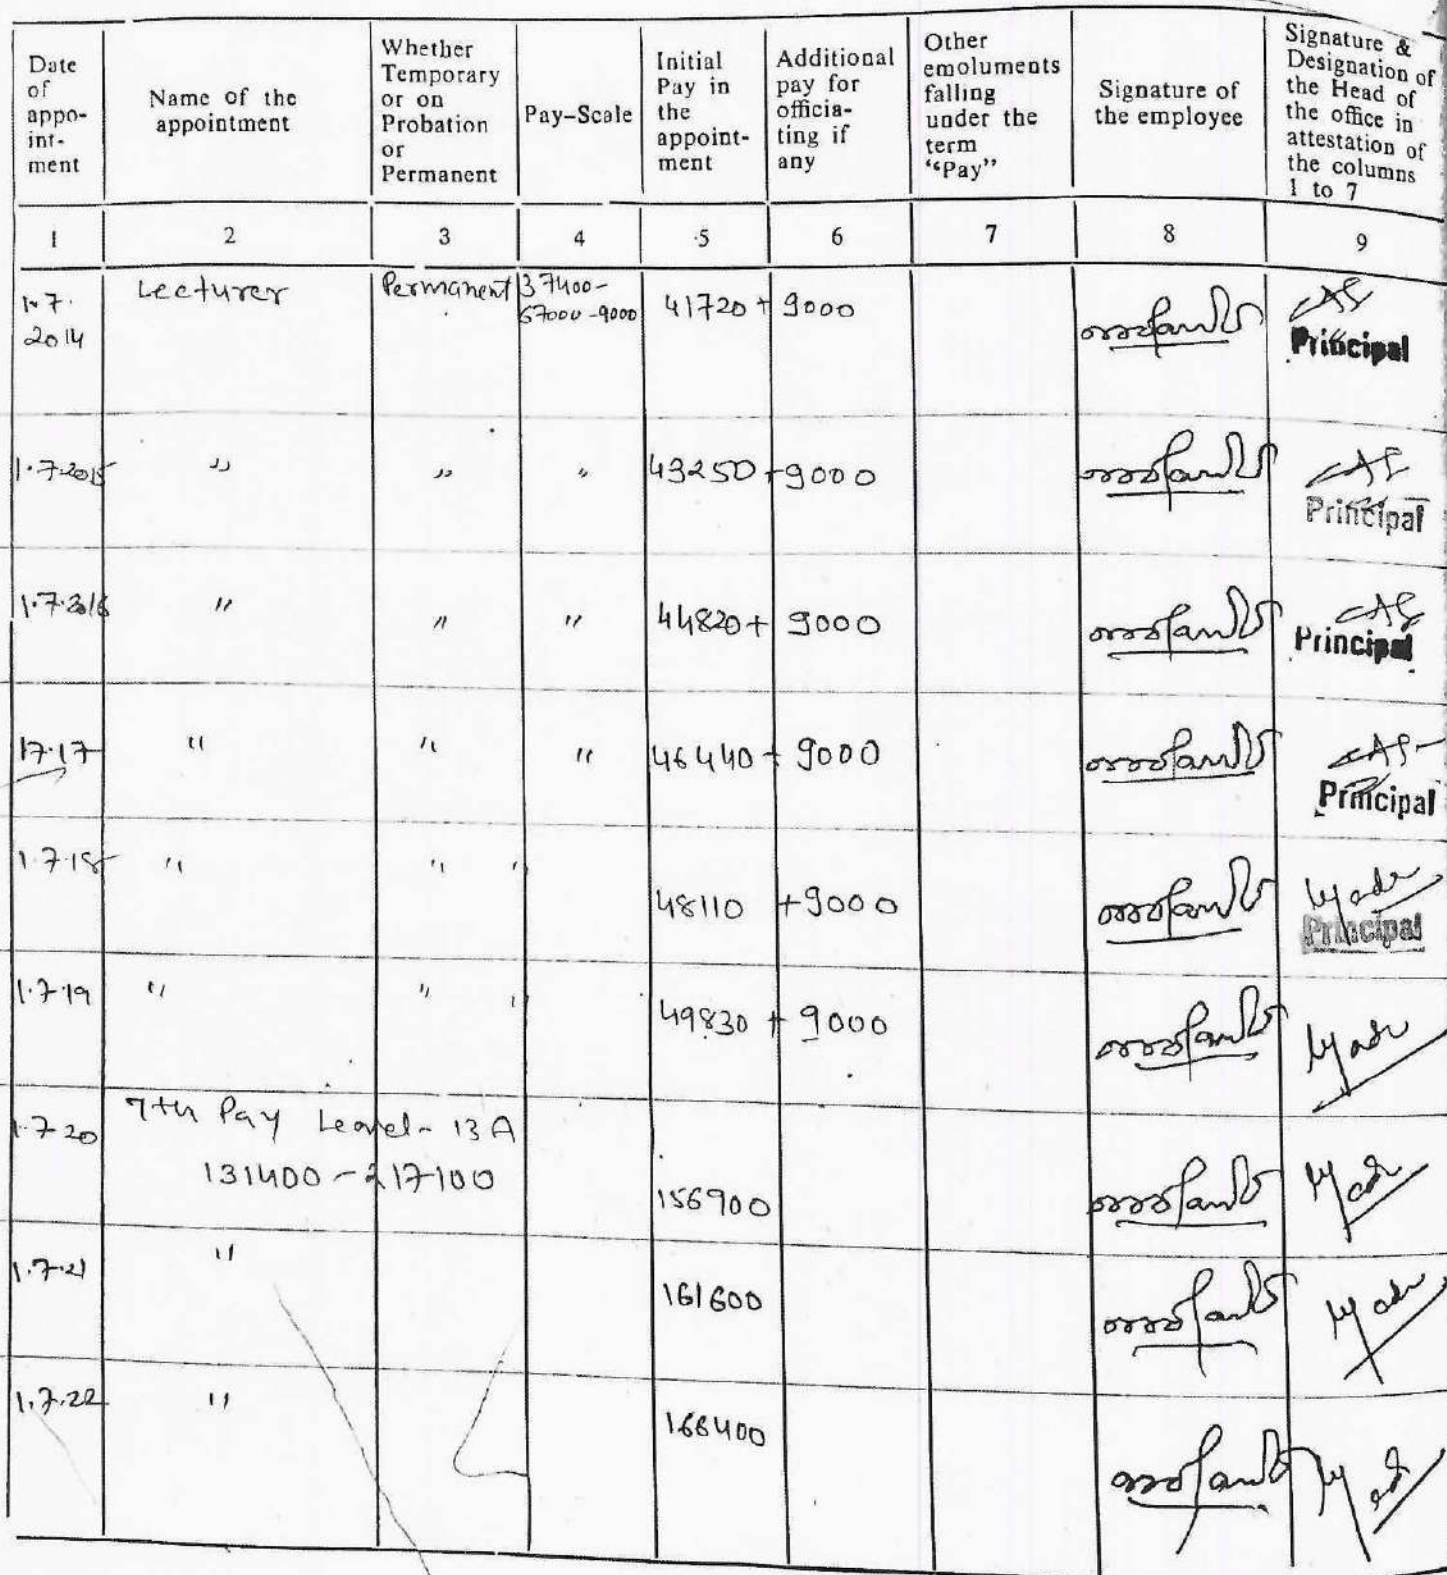 Date of appo- int- ment
Name of the appointment
Whether Temporary or on Probation or Permanent
Pay-Scale
Initial Pay in the appoint- ment
Additional pay for officia- ting if any
Other emoluments falling under the term “Pay”
Signature of the employee
Signature & Designation of the Head of the office in attestation of the columns 1 to 7
1 2 3 4 5 6 7 8 9
1.7. 2014 Lecturer Permanent 37400- 67000-9000 41720 + 9000 Principal
1.7.2015 " " " 43250 + 9000 Principal
1.7.2016 " " " 44820 + 9000 Principal
1.7.17 " " " 46440 + 9000 Principal
1.7.18 " " " 48110 + 9000 Principal
1.7.19 " " " 49830 + 9000
1.7.20 7th Pay Level- 13A
131400 - 217100 156900
1.7.21 " 161600
1.7.22 " 166400